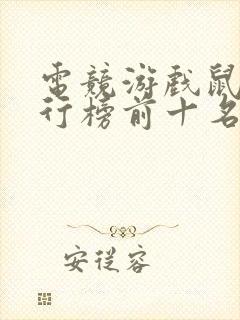 電競游戲鼠
行榜前十名
安從容